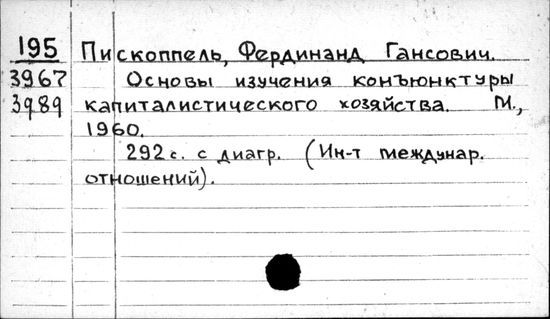 195 Пископпель, Фердинанд Гансович.
3967 Основы изучения конъюнктуры
3989 капиталистического хозяйства. М.,
1960.
292 с. с диагр. (Ин-т междунар.
отношений).